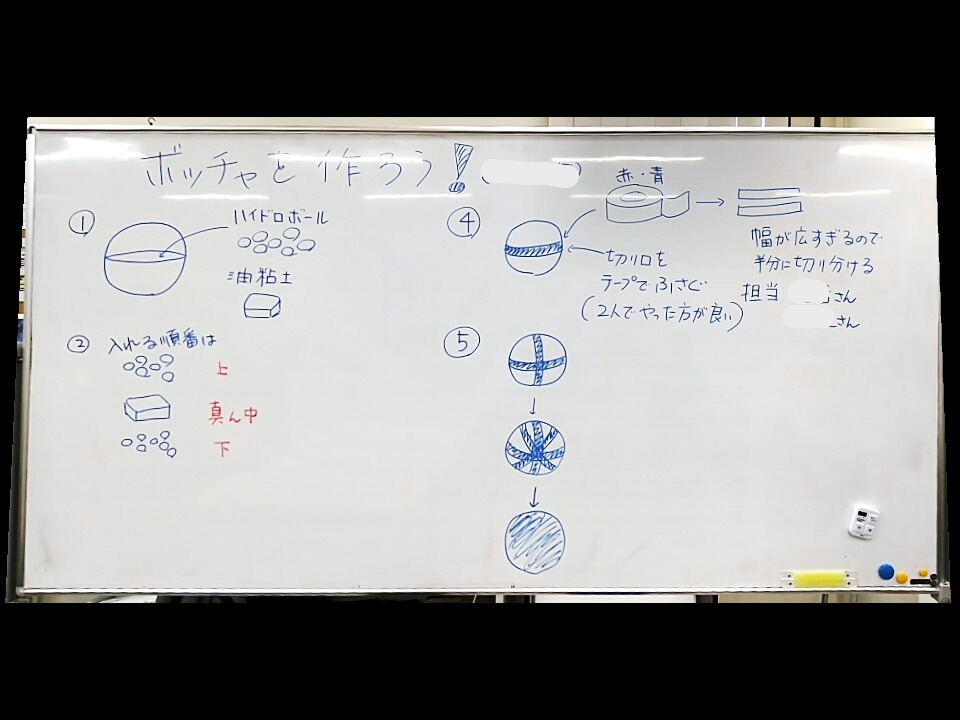 ボッチャを作ろう!(
①
ハイドロボール
油粘土
② 入れる順番は
上
真ん中
下
④
赤・青
切り口を
テープでふさぐ
(2人でやった方が良い)
幅が広すぎるので
半分に切り分ける
担当 さん
さん
⑤